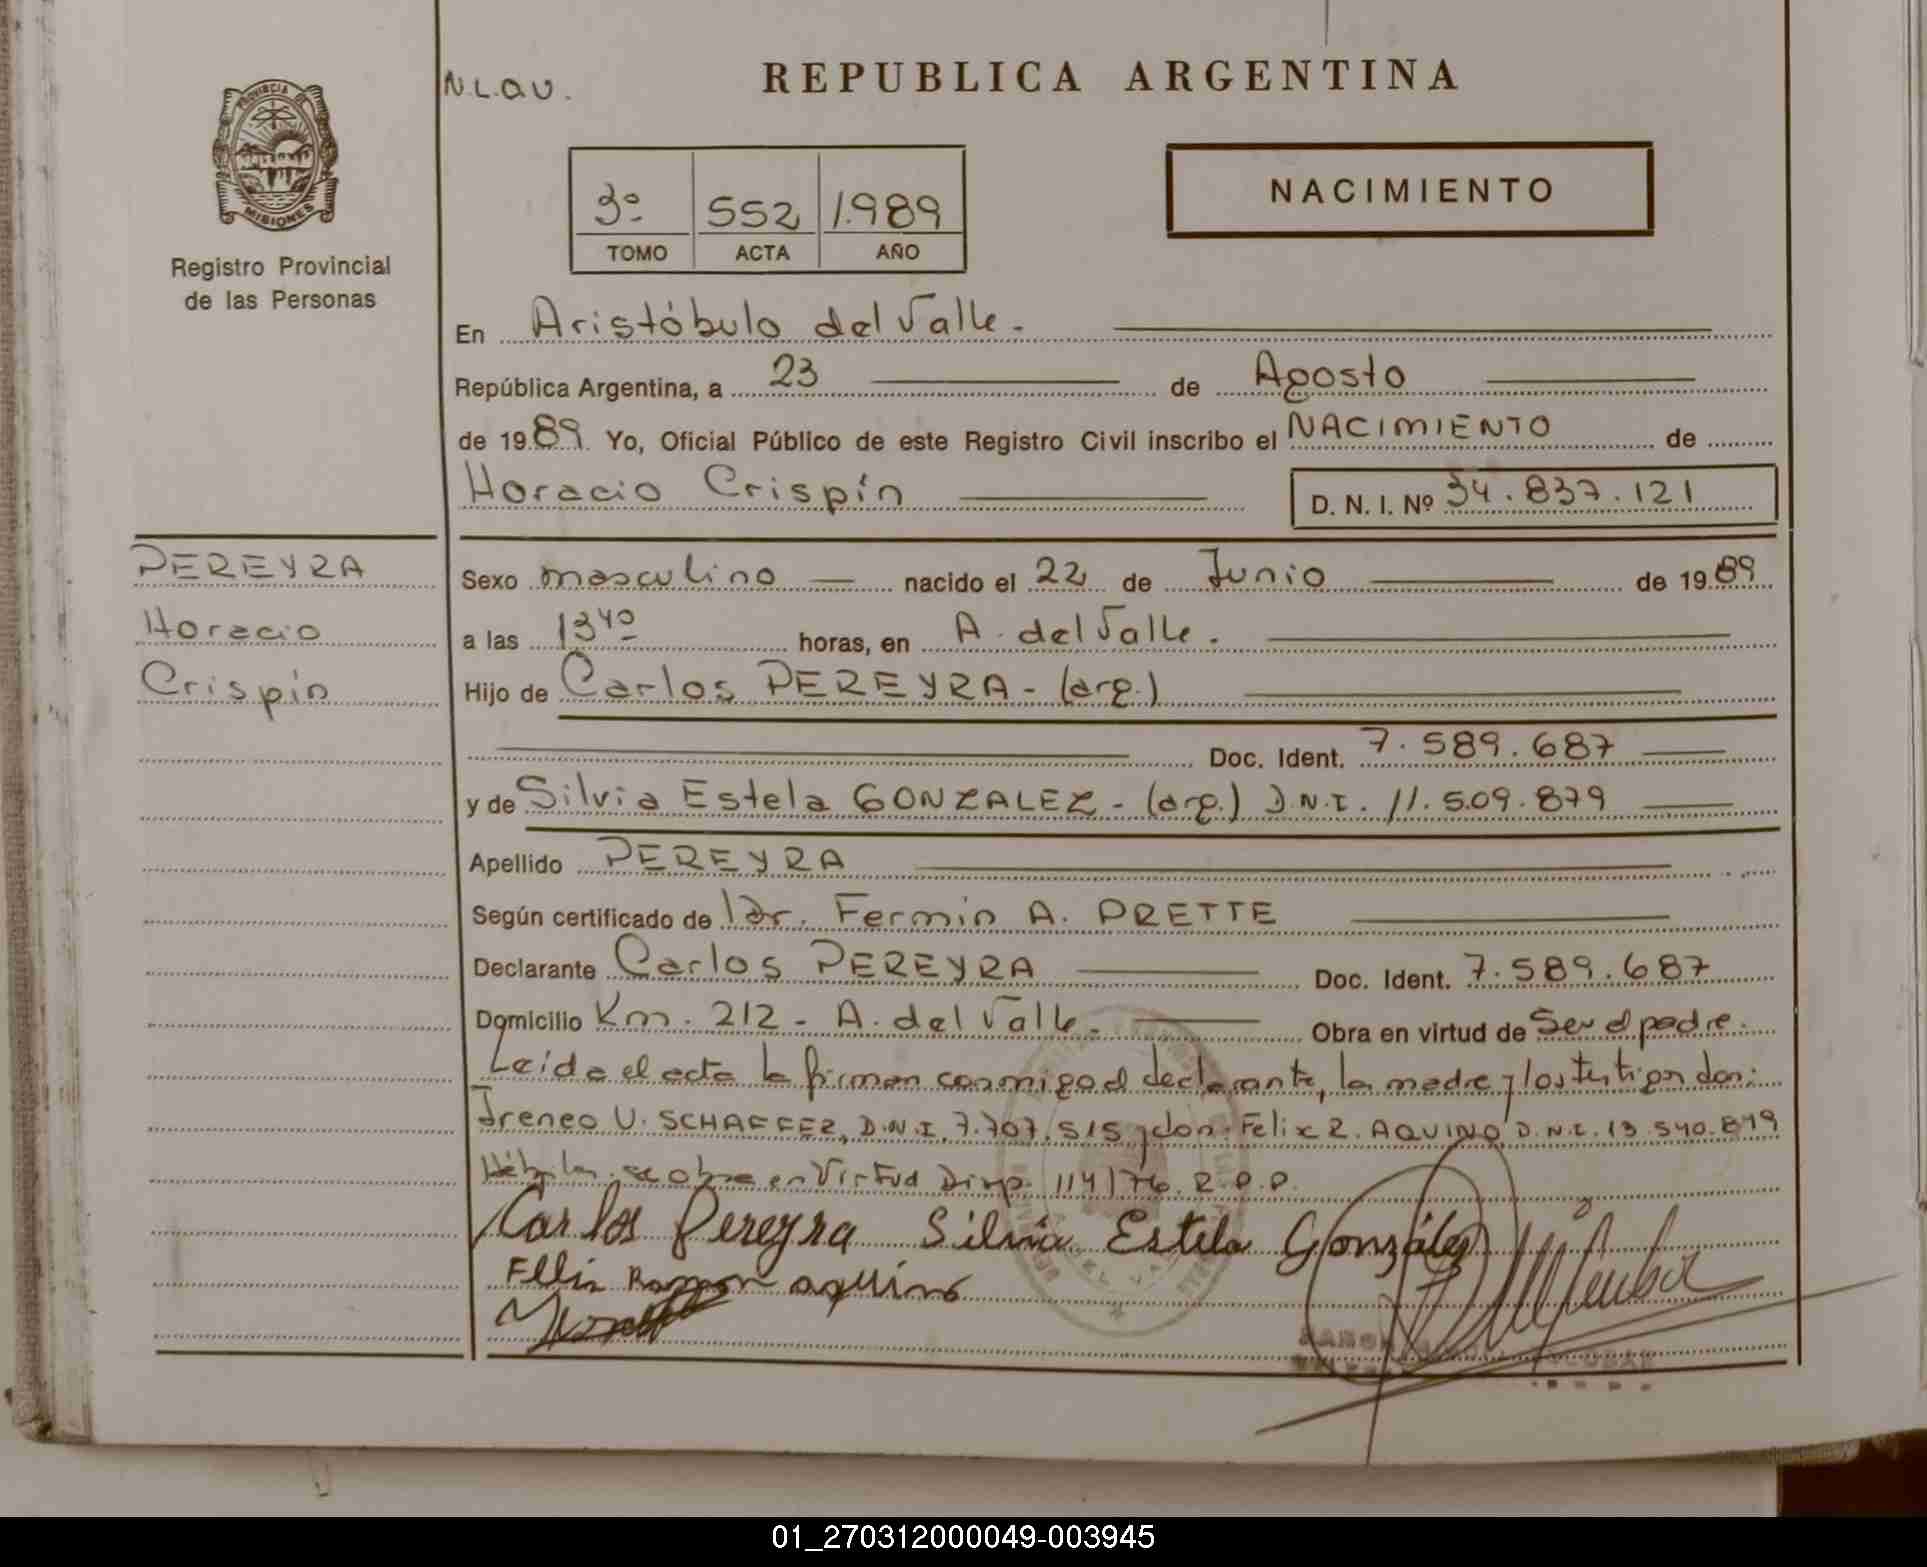 PROVINCIA DE
MISIONES
Registro Provincial
de las Personas
N.L.QU.
REPUBLICA ARGENTINA
3º 552 1.989
TOMO ACTA AÑO
NACIMIENTO
En Aristóbulo del Valle.
República Argentina, a 23 de Agosto
de 1989. Yo, Oficial Público de este Registro Civil inscribo el NACIMIENTO de
Horacio Crispín D. N. I. Nº 34.837.121
PEREYRA
Horacio
Crispín
Sexo masculino nacido el 22 de Junio de 1989
a las 13⁴⁰ horas, en A. del Valle.
Hijo de Carlos PEREYRA - (arg.)
Doc. Ident. 7.589.687
y de Silvia Estela GONZALEZ - (arg.) D.N.I. 11.509.879
Apellido PEREYRA
Según certificado de Dr. Fermin A. PRETTE
Declarante Carlos PEREYRA Doc. Ident. 7.589.687
Domicilio Km. 212 - A. del Valle. Obra en virtud de Ser el padre.
Leída el acta la firman conmigo el declarante, la madre y los testigos don:
Ireneo U. SCHAFFER, D.N.I. 7.707.515 y don Felix R. AQUINO D.N.I. 13.540.879
Hábiles. se obra en Virtud Disp. 114/76. R.P.P.
Carlos Pereyra Silvia Estela González
Felix Ramon aquino
01_270312000049-003945